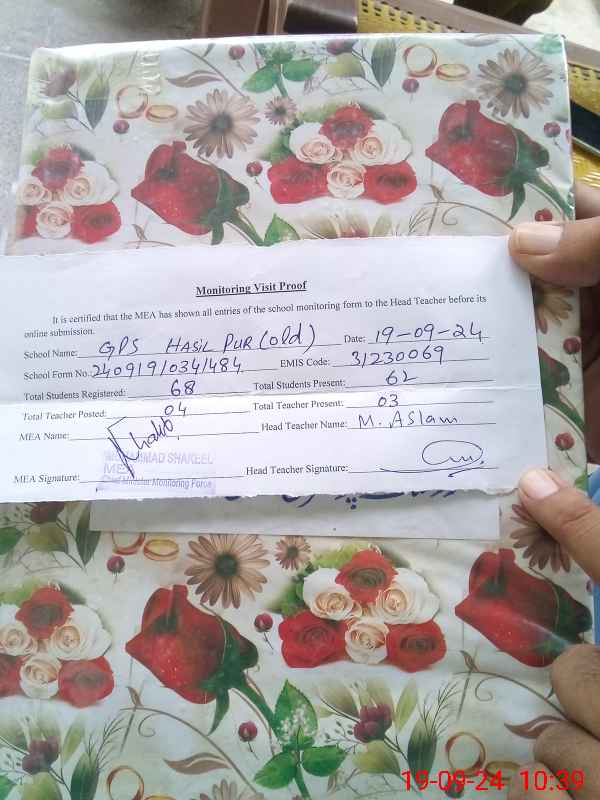 Monitoring Visit Proof
It is certified that the MEA has shown all entries of the school monitoring form to the Head Teacher before its
online submission.
School Name: GPS HASIL PUR (old) Date: 19-09-24
School Form No. 240919/0341484 EMIS Code: 31230069
Total Students Registered: 68 Total Students Present: 62
Total Teacher Posted: 04 Total Teacher Present: 03
MEA Name: Head Teacher Name: M. Aslam
MUHAMMAD SHAKEEL
MEA
MEA Signature: Chief Minister Monitoring Force Head Teacher Signature:
19-09-24 10:39